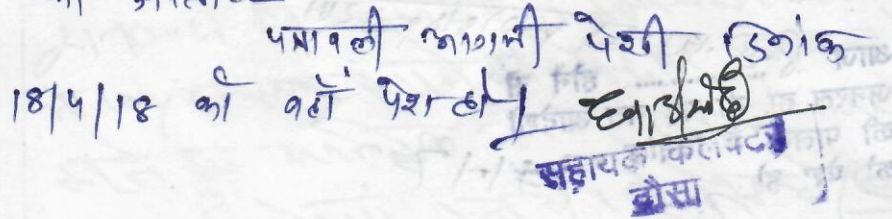 पत्रावली आगामी पेशी दिनांक
18/4/18 को वहाँ पेश हो।
सहायक कलक्टर
दौसा